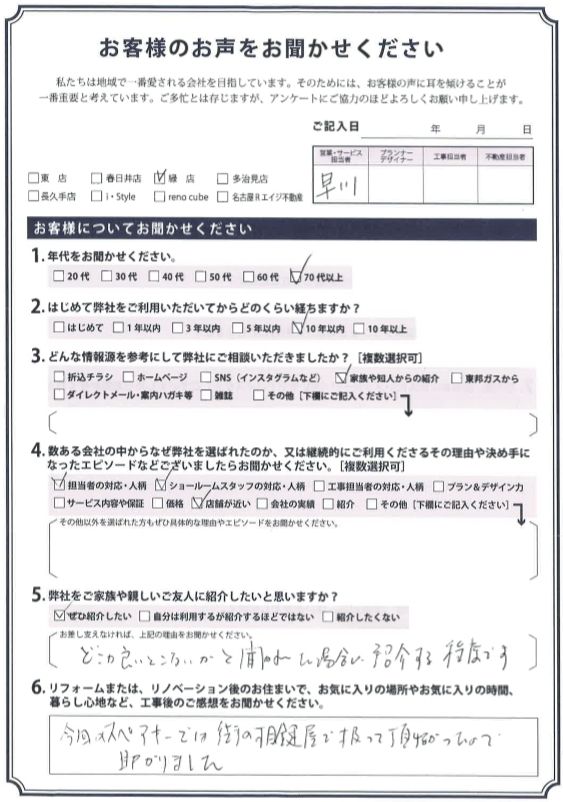 お客様のお声をお聞かせください
私たちは地域で一番愛される会社を目指しています。そのためには、お客様の声に耳を傾けることが
一番重要と考えています。ご多忙とは存じますが、アンケートにご協力のほどよろしくお願い申し上げます。
ご記入日 年 月 日
営業・サービス担当者 プランナーデザイナー 工事担当者 不動産担当者
早川
□東 店 □春日井店 ☑緑 店 □多治見店
□長久手店 □i・Style □reno cube □名古屋Rエイジ不動産
お客様についてお聞かせください
1. 年代をお聞かせください。
□20代 □30代 □40代 □50代 □60代 ☑70代以上
2. はじめて弊社をご利用いただいてからどのくらい経ちますか?
□はじめて □1年以内 □3年以内 □5年以内 ☑10年以内 □10年以上
3. どんな情報源を参考にして弊社にご相談いただきましたか?[複数選択可]
□折込チラシ □ホームページ □SNS(インスタグラムなど) ☑家族や知人からの紹介 □東邦ガスから
□ダイレクトメール・案内ハガキ等 □雑誌 □その他[下欄にご記入ください]
4. 数ある会社の中からなぜ弊社を選ばれたのか、又は継続的にご利用くださるその理由や決め手に
なったエピソードなどございましたらお聞かせください。[複数選択可]
☑担当者の対応・人柄 ☑ショールームスタッフの対応・人柄 □工事担当者の対応・人柄 □プラン&デザイン力
□サービス内容や保証 □価格 ☑店舗が近い □会社の実績 □紹介 □その他[下欄にご記入ください]
その他以外を選ばれた方もぜひ具体的な理由やエピソードをお聞かせください。
5. 弊社をご家族や親しいご友人に紹介したいと思いますか?
☑ぜひ紹介したい □自分は利用するが紹介するほどではない □紹介したくない
お差し支えなければ、上記の理由をお聞かせください。
どこか良いところないかと聞かれた場合に紹介する程度です
6. リフォームまたは、リノベーション後のお住まいで、お気に入りの場所やお気に入りの時間、
暮らし心地など、工事後のご感想をお聞かせください。
今回のスペアキーでは街の鍵屋で扱って頂けなかったので
助かりました